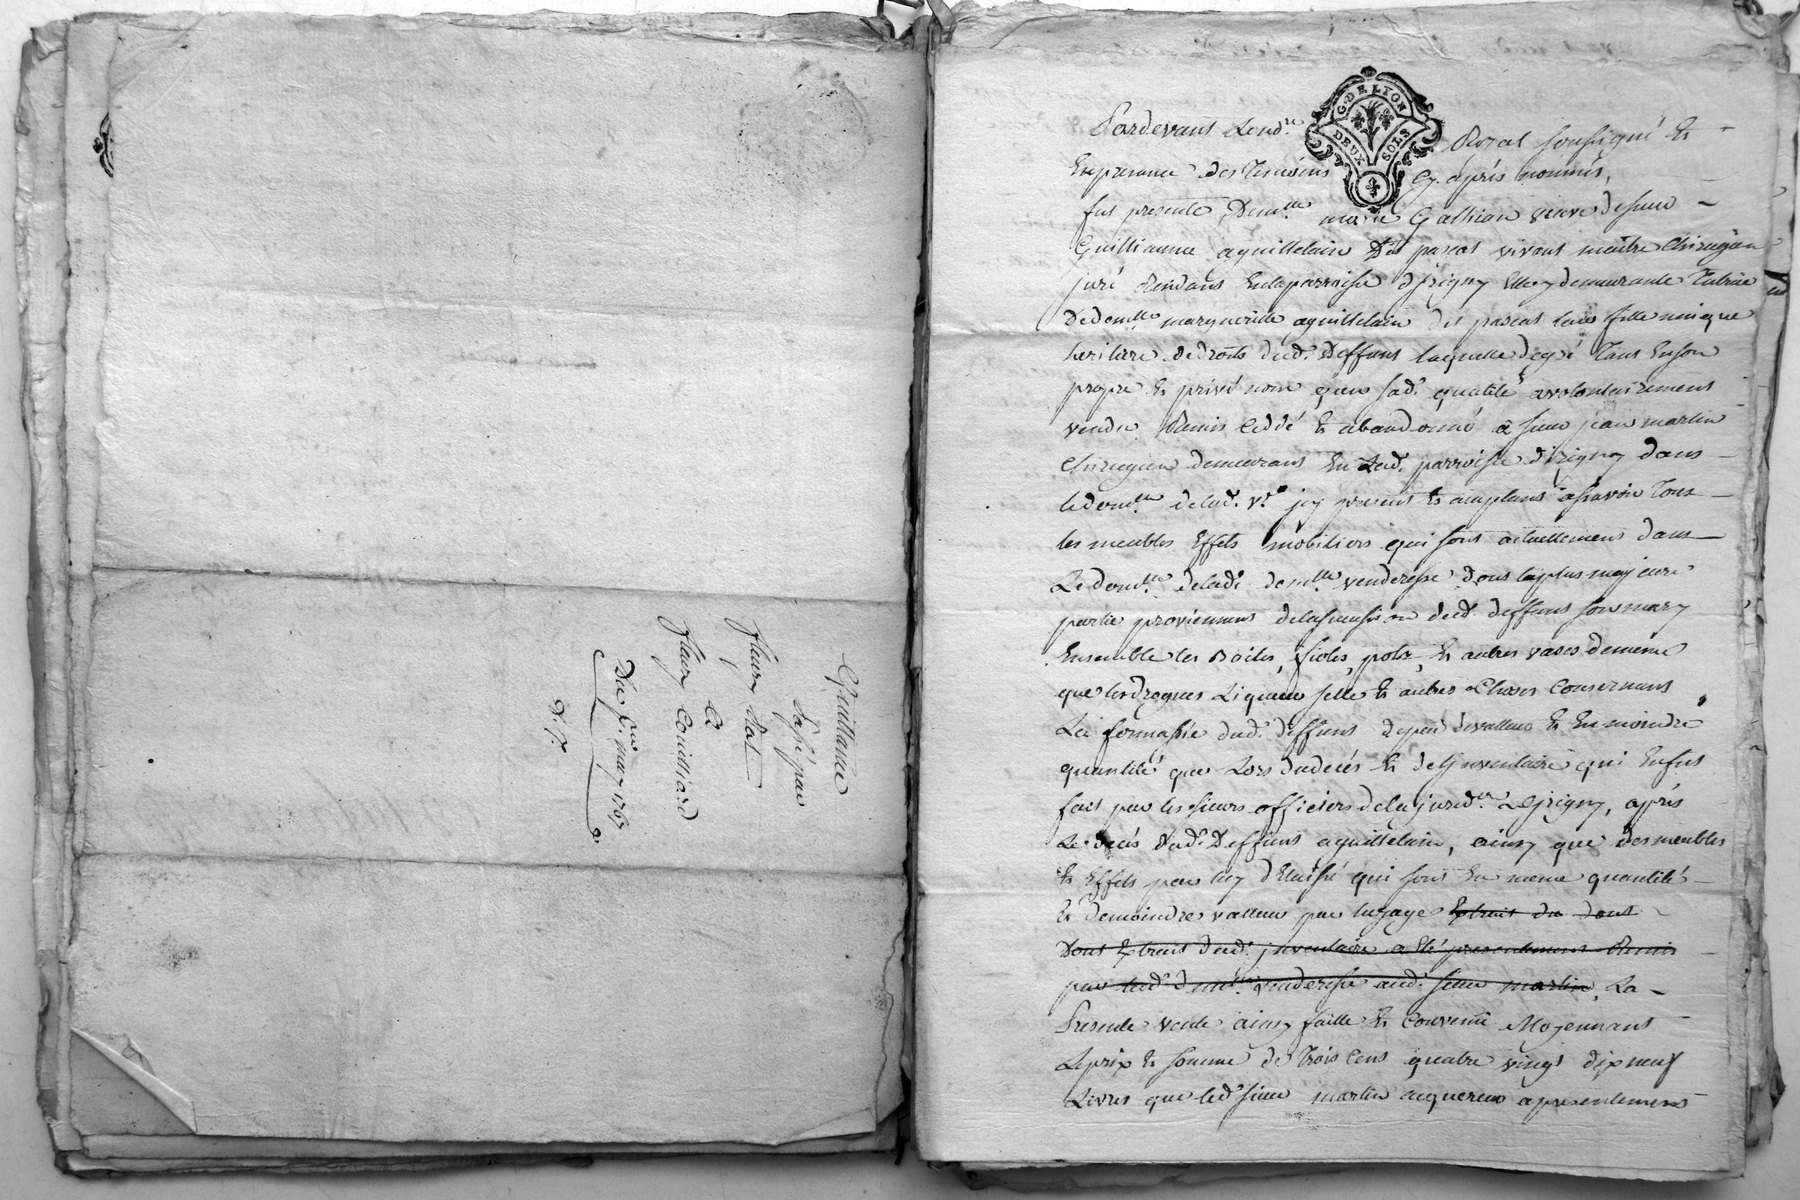 Quittance
passé par
fleury
à
fleury Couilliard
Du mars 1767
G. DE LYON
DEUX SOLS
Pardevant Le no.re Royal soussigné Et
En presence des Temoins Cy après nommés,
fut presente Dem.lle marie Gathian veuve de sieur
Guilliaume aguilletain Dit pascal vivant maitre Chirurgien
juré Residant En la parroisse d'jrigny Elle y demeurante Tutrice
De dem.lle margueritte aguilletain dit pascal leur fille unique
heritiere de droits dud. Deffunt laquelle de gré Tant En son
propre Et privé nom qu'en sad. qualité a volontairement
vendu Remis Ceddé Et abandonné à sieur jean martin
Chirurgien demeurant En Lad. parroisse d'irigny dans
le dom.lle de lad. v.e jcy present Et acceptant asavoir Tous
les meubles Effets mobiliers qui sont actuellement dans
Le dom.lle de lad. dem.lle venderesse dont la plus majeure
partie proviennent de la sucession dud. deffunt son mary
Ensemble les Boites, fioles, pots, Et autres vases de meme
que les drogues Liqueur selle Et autres Choses Consernant
La formassie dud. deffunt de peu de valleur Et En moindre
quantité que Lors du decés Et de L'jnventaire qui En fut
fait par les sieurs officiers de la jurid.on d'jrigny, après
Le decés dud. Deffunt aguilletain, ainsy que des meubles
Et Effets par luy delaissé qui sont En meme quantité
Et de moindre valleur par lusage Extrait du dont
Dont Extrait dud. jnventaire a Eté presentement Remis
par lad. dem.lle venderesse aud. sieur martin, La
Presente vente ainsy faitte Et Convenue Moyennant
Le prix Et somme de Trois Cens quatre vingt dix neuf
Livres que led. sieur martin acquereur a presentement